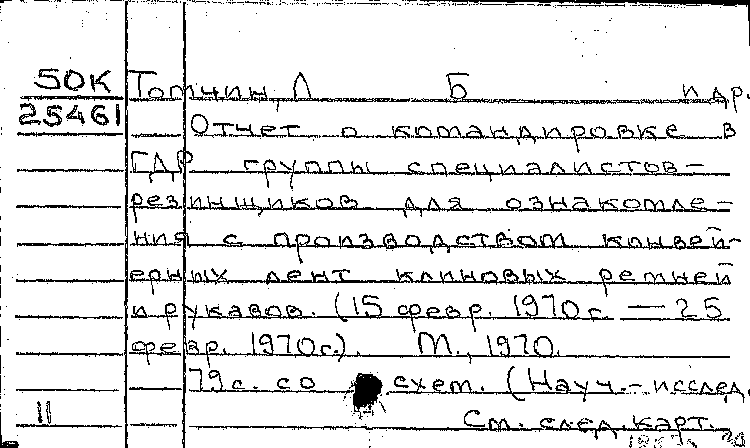 50К Томчин, Л Б и др.
25461
Отчет о командировке в
ГДР группы специалистов-
резинщиков для ознакомле-
ния с производством конвей-
ерных лент клиновых ремней
и рукавов. (15 февр. 1970г. — 25
февр. 1970г.). М., 1970.
79с. со схем. (Науч.-исслед.
11 См. след. карт.